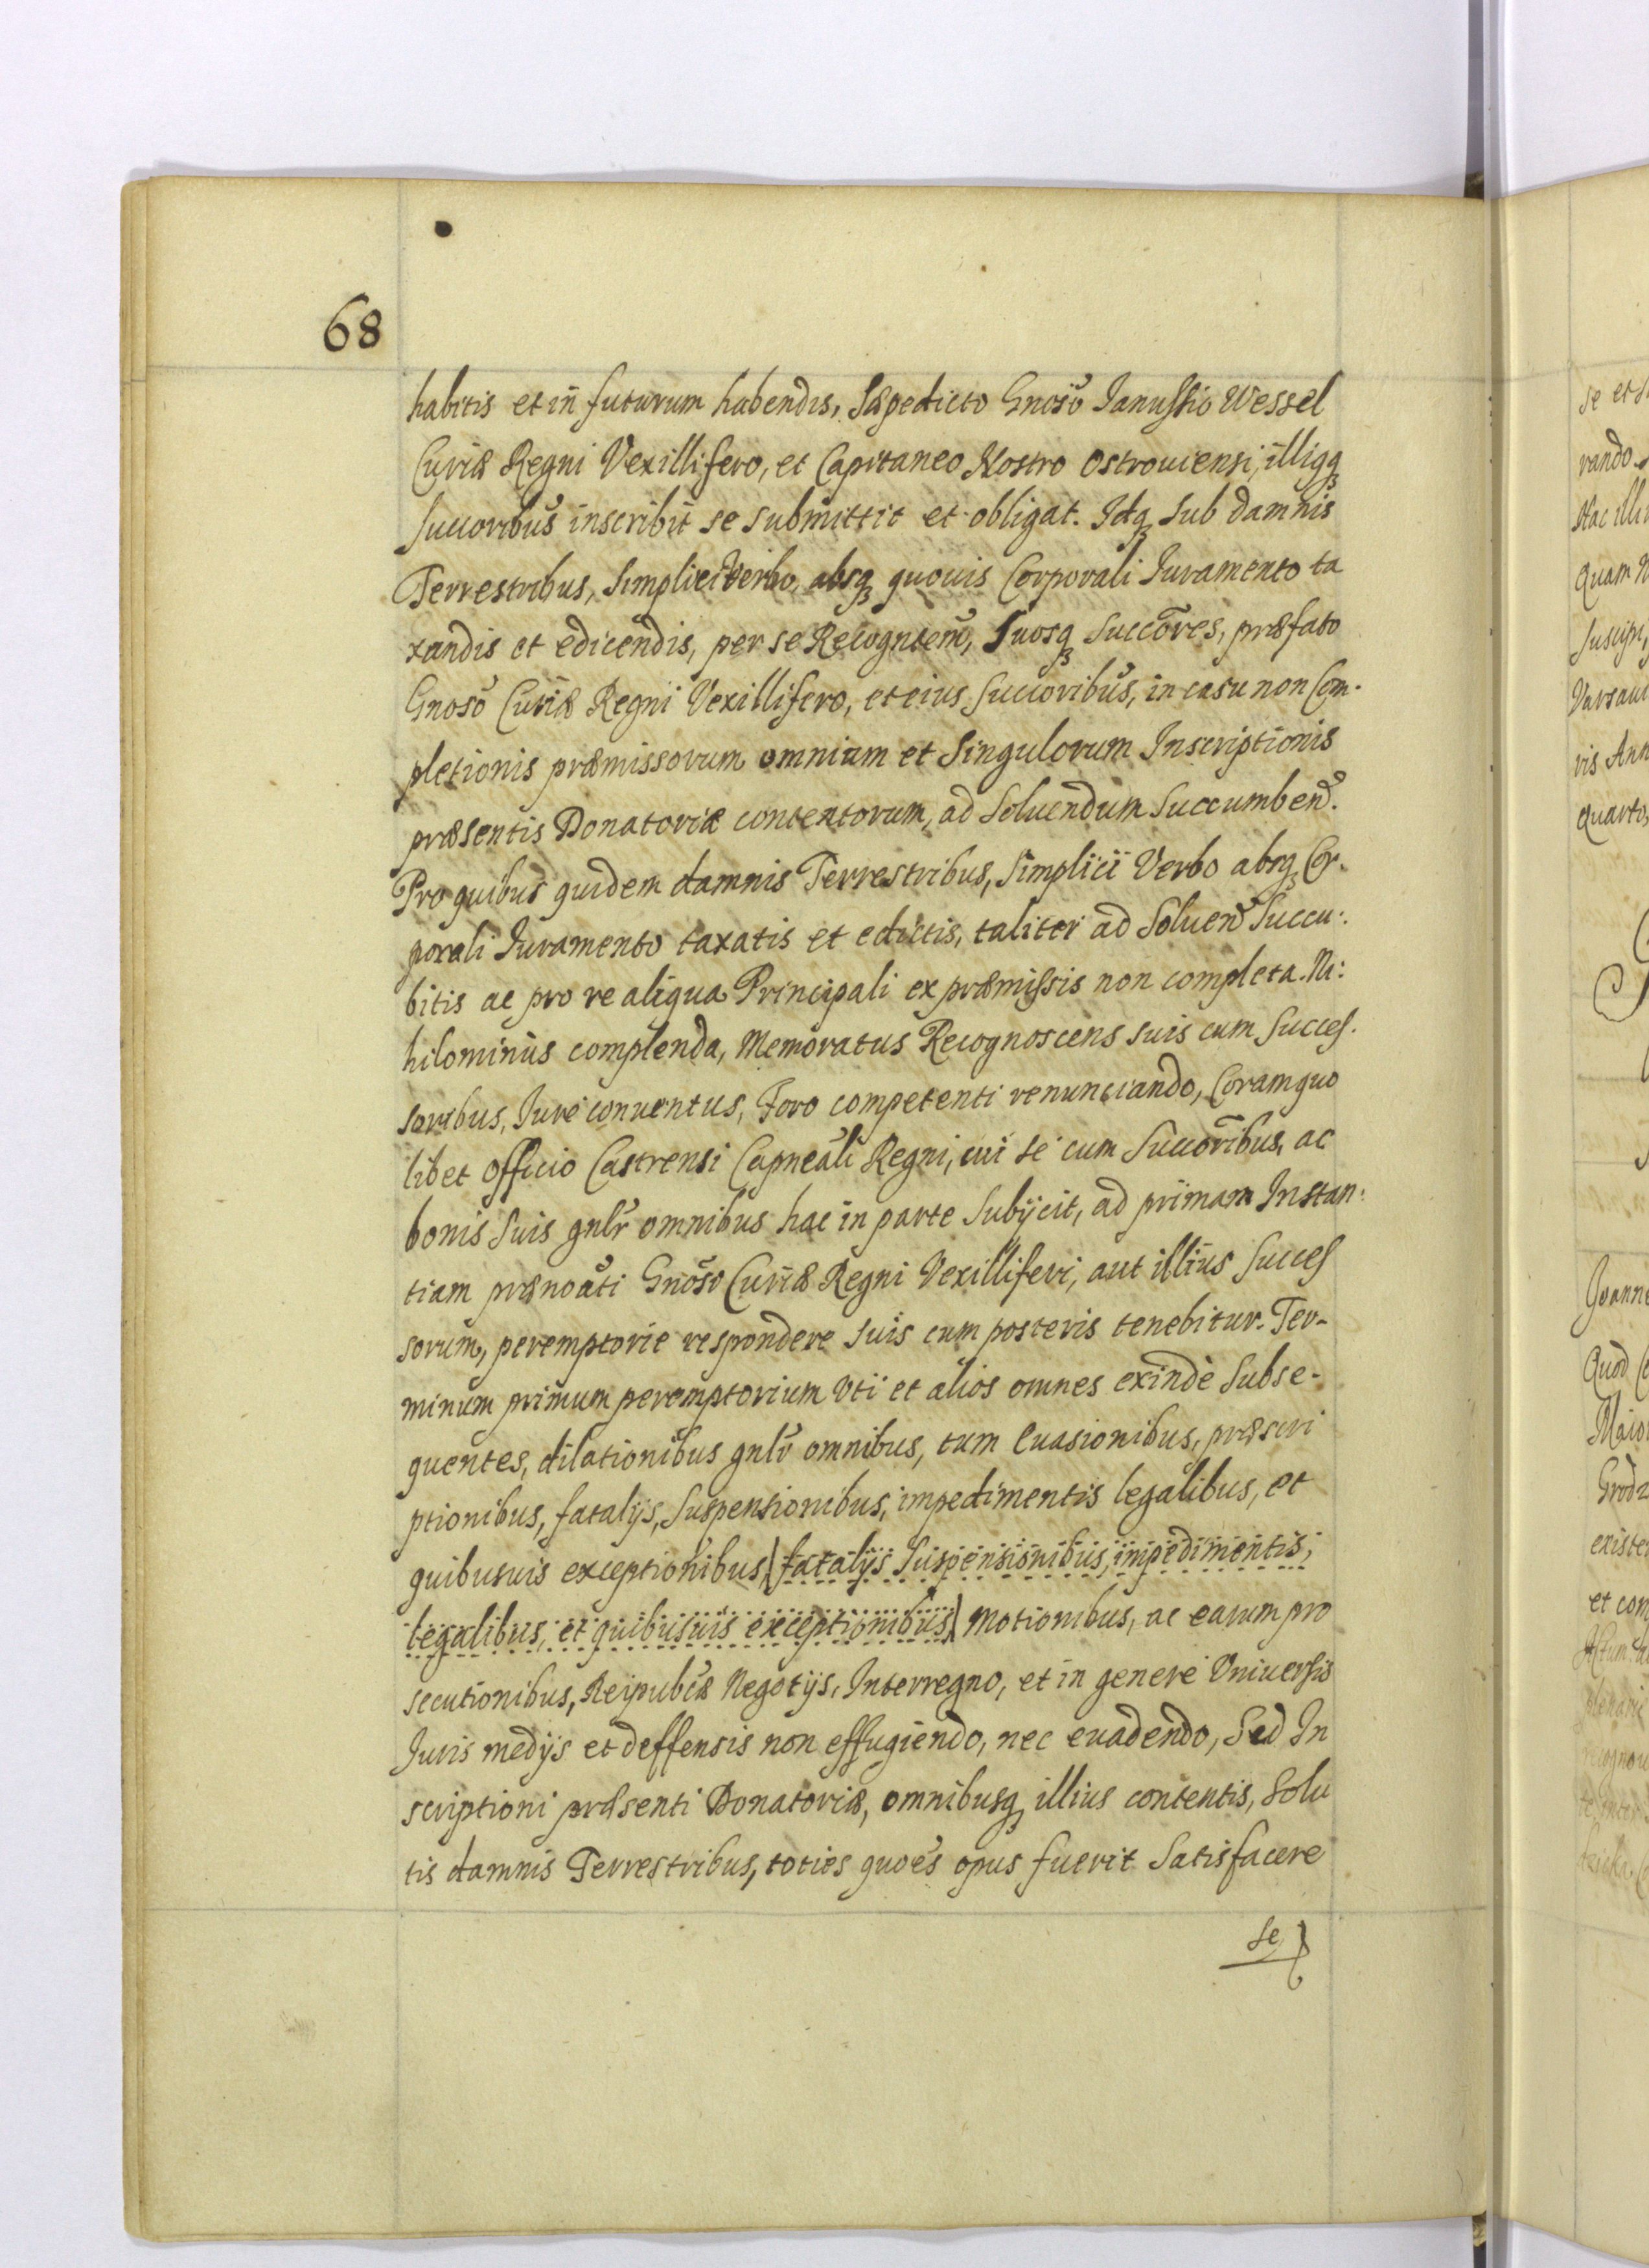 68
habitis et in futurum habendis, Sæpedicto Gnoso Janussio Wessel
Curiæ Regni Vexillifero, et Capitaneo Nostro Ostroviensi, illiqq
succoribus inscribit se submittit et obligat. Idq sub damnis
Terrestribus, Simplici Verbo, absq quovis Corporali Juramento ta
xandis et edicendis, per se Recogntem, Suosq Succores, præfato
Gnoso Curiæ Regni Vexillifero, et eius succoribus, in casu non Com-
pletionis præmissorum omnium et Singulorum Inscriptionis
præsentis Donatoriæ contentorum, ad Soluendum Succumbend.
Pro quibus quidem damnis Terrestribus, Simplici Verbo absq Cor-
porali Juramento taxatis et edictis, taliter ad Soluend Succu:
bitis ac pro re aliqua Principali ex præmissis non completa. Ni:
hilominus complenda, Memoratus Recognoscens suis cum Succes-
soribus, Jure conuentus, Foro competenti renunciando, Coram quo
libet Officio Castrensi Capneali Regni, cui se cum Succoribus, ac
bonis Suis gnlr omnibus hac in parte Subijcit, ad primam Instan:
tiam prænoati Gnosi Curiæ Regni Vexilliferi, aut illius Succes
sorum, peremptorie respondere suis cum posteris tenebitur. Ter-
minum primum peremptorium Uti et alios omnes exinde Subse-
quentes, dilationibus gnlr omnibus, tum Euasionibus, præscri
ptionibus, fatalijs, Suspensionibus, impedimentis legalibus, et
quibusuis exceptionibus, fatalijs Suspensionibus, impedimentis,
legalibus, et quibusuis exceptionibus motionibus, ac earum pro
secutionibus, Reipublcæ Negotijs, Interregno, et in genere Uniuersis
Juris medijs et deffensis non effugiendo, nec evadendo, Sed In
scriptioni præsenti Donatoriæ, omnibusq illius contentis, Solu
tis damnis Terrestribus, toties quoes opus fuerit Satisfacere
se